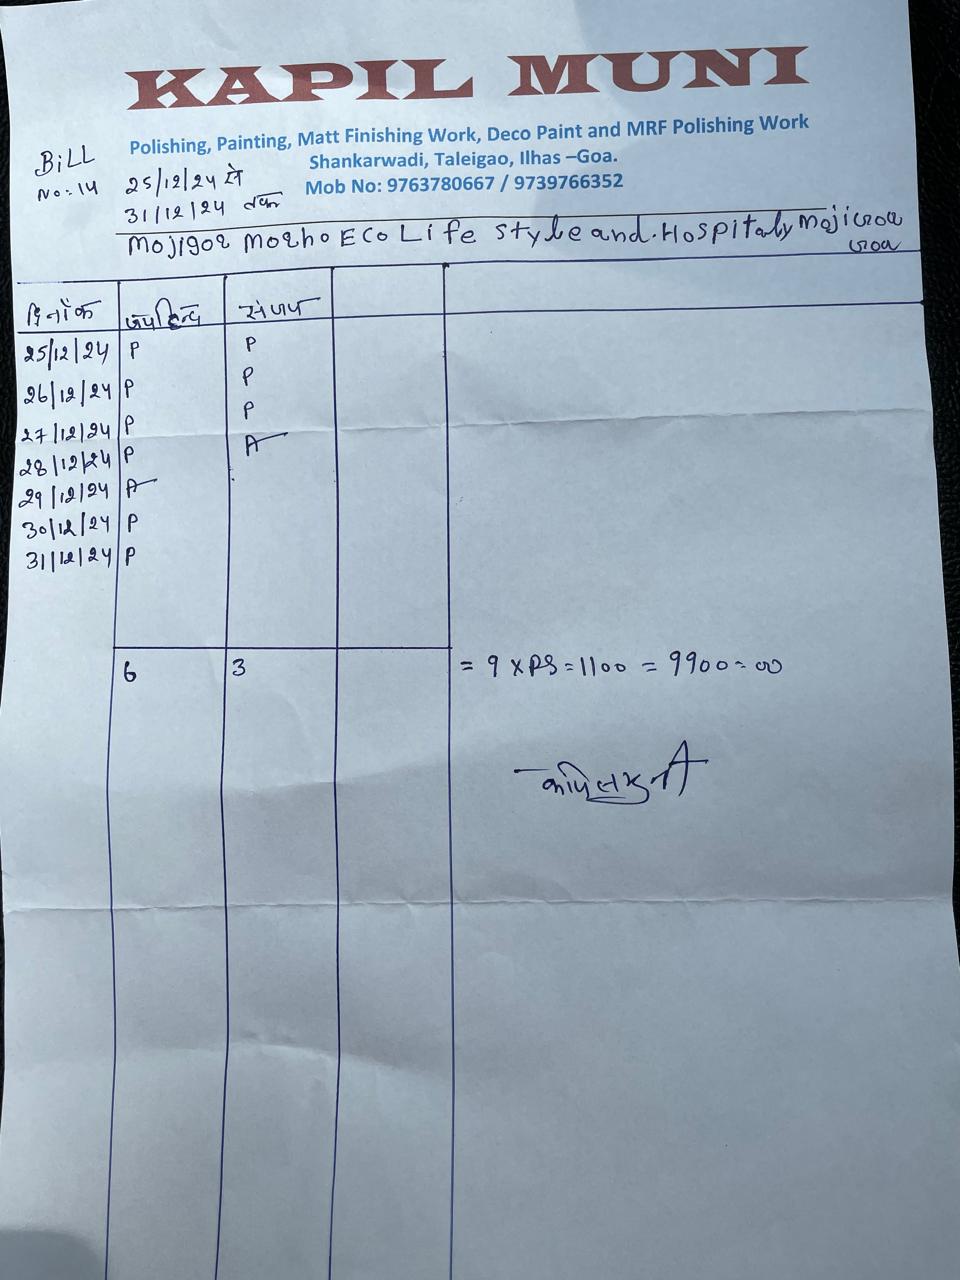 KAPIL MUNI
Polishing, Painting, Matt Finishing Work, Deco Paint and MRF Polishing Work
Shankarwadi, Taleigao, Ilhas –Goa.
Mob No: 9763780667 / 9739766352
BiLL
No:14
25/12/24 से
31/12/24 तक
Mojigoa Morho ECo Life Style and. Hospitaly Mojigoa
goa
दिनाँक जयहिन्द संजय
25/12/24 P P
26/12/24 P P
27/12/24 P P
28/12/24 P A
29/12/24 A
30/12/24 P
31/12/24 P
6 3 = 9 X RS = 1100 = 9900=00